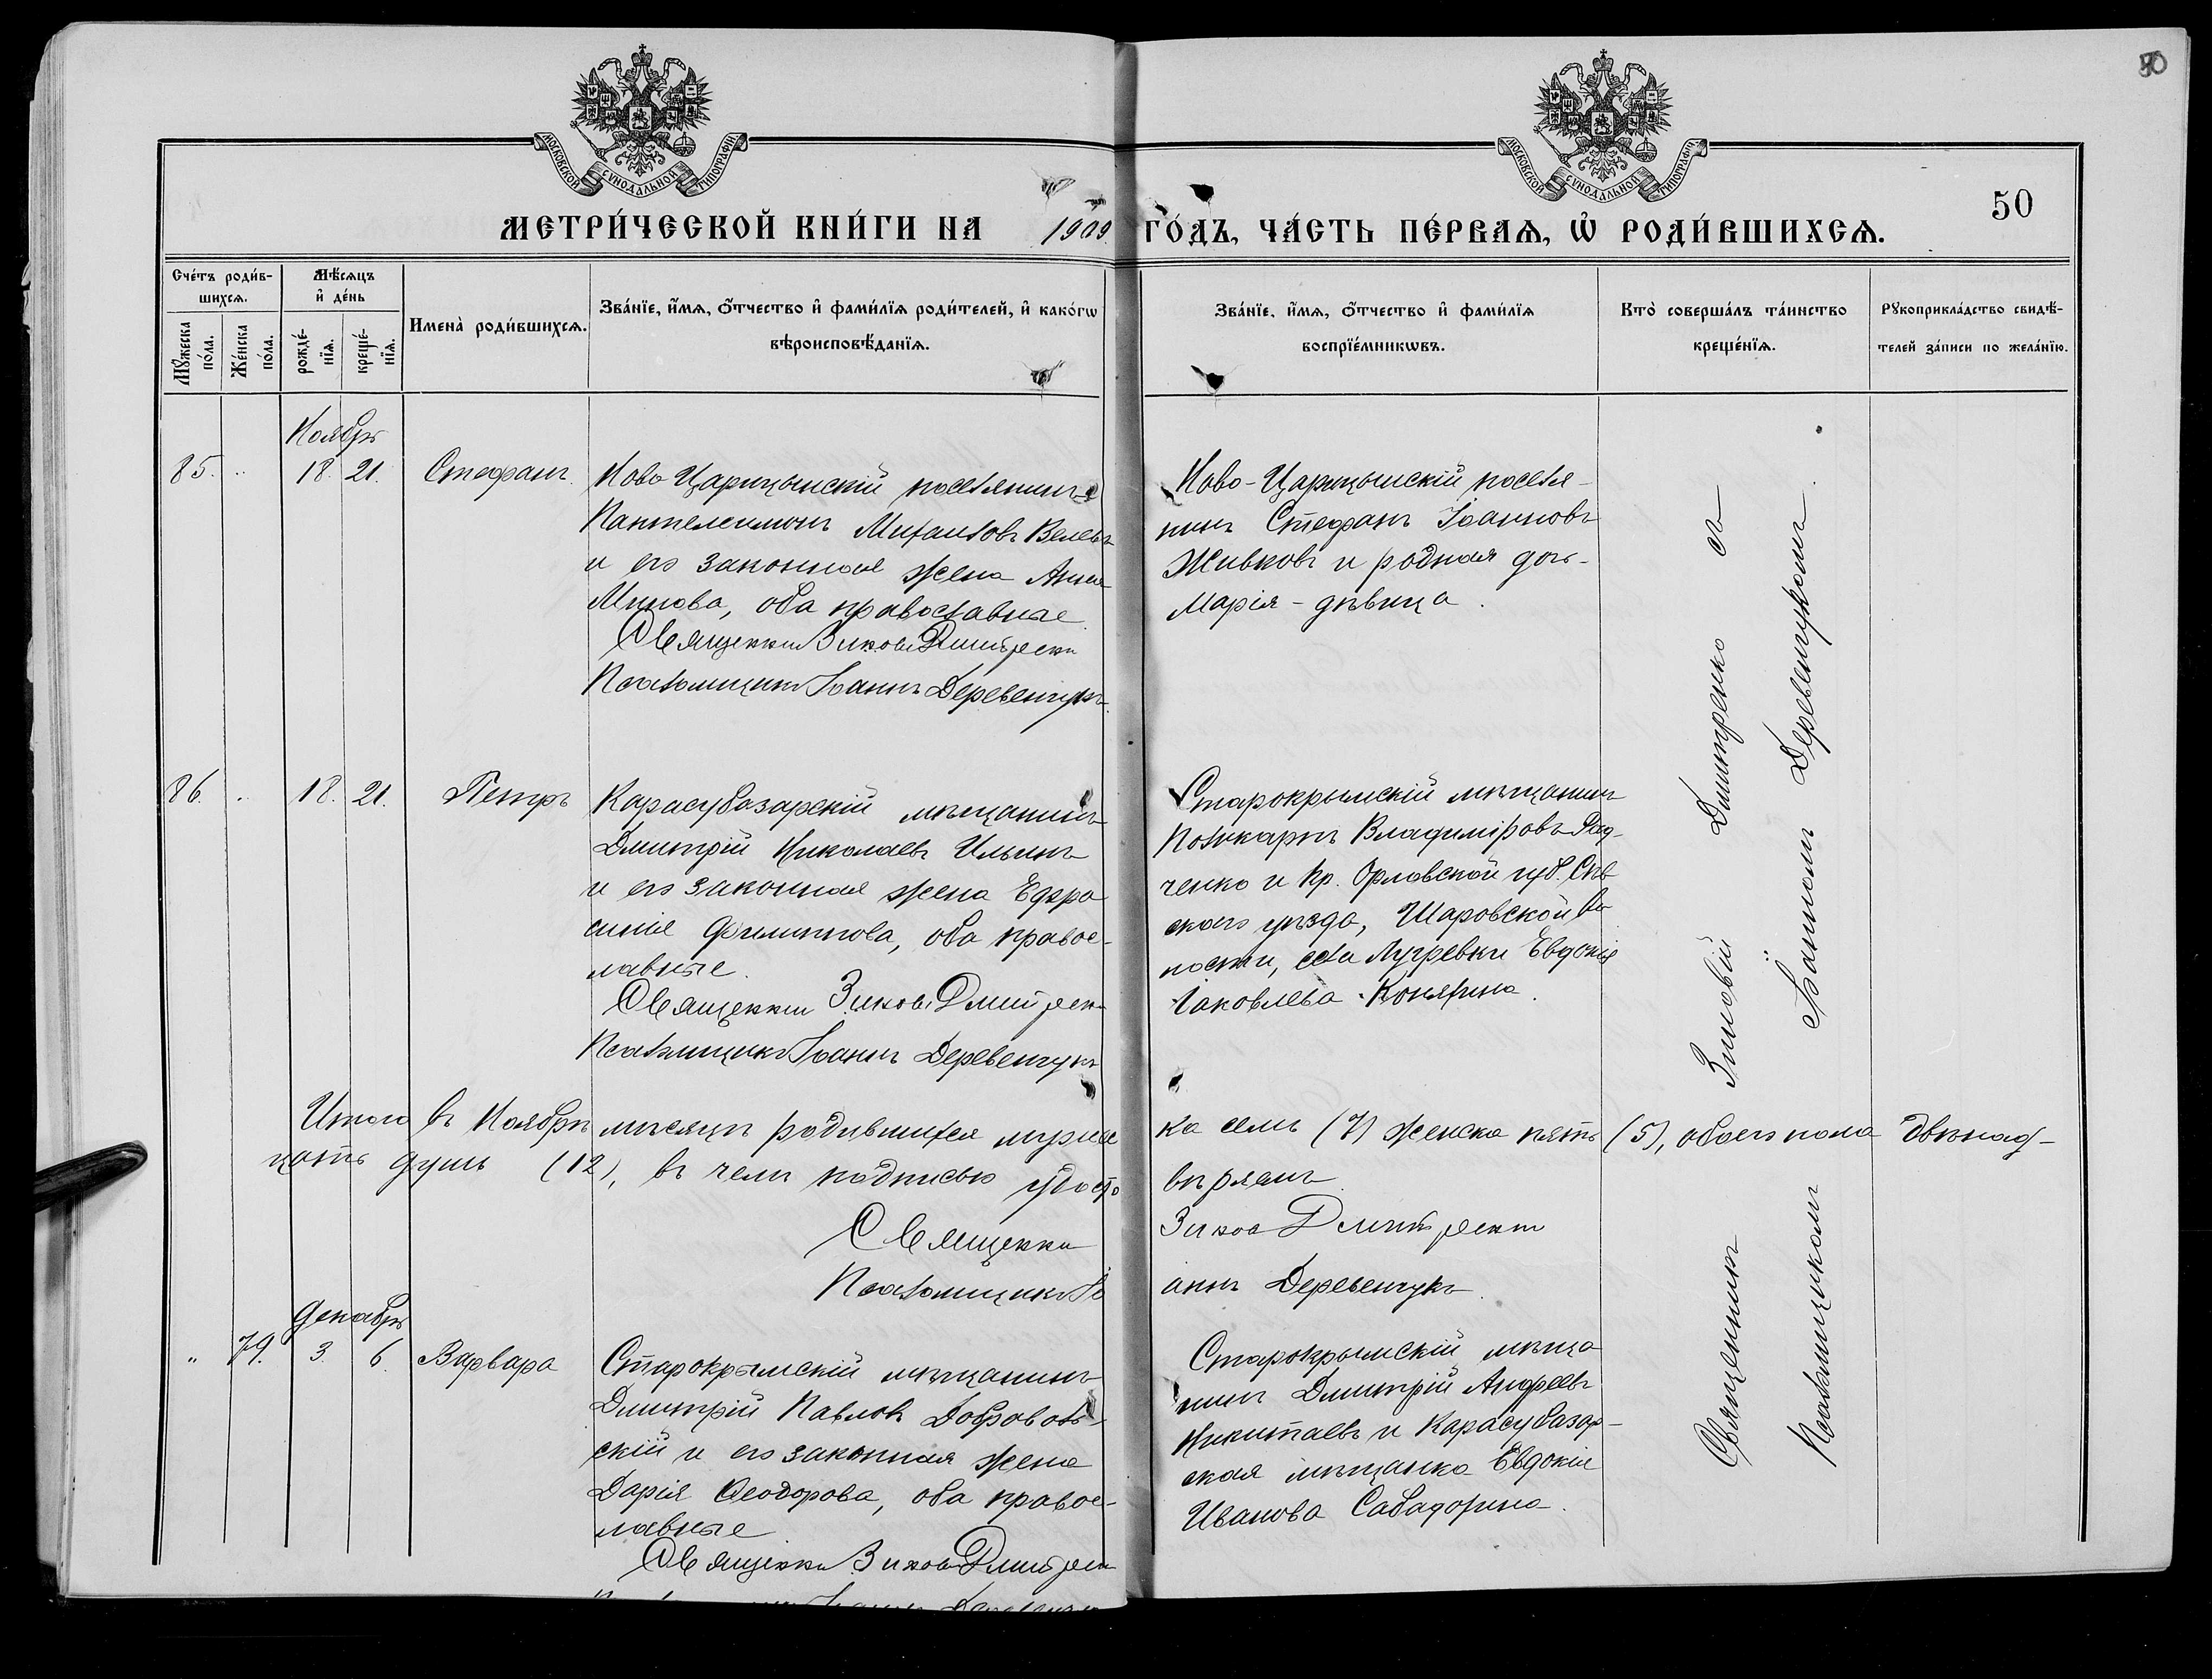 50
МОСКОВСКОЙ СѴНОДАЛЬНОЙ ТИПОГРАФІИ.
МОСКОВСКОЙ СѴНОДАЛЬНОЙ ТИПОГРАФІИ.
50
МЕТРИ́ЧЕСКОЙ КНИ́ГИ НА 1909 ГО́ДЪ, ЧА́СТЬ ПЕ́РВАѦ, Ѡ҆ РОДИ́ВШИХСѦ.
Сче́тъ роди́в-
шихсѧ.
Мꙋ́жеска по́ла.
Же́нска по́ла.
Мѣ́сѧцъ
и҆ де́нь
рожде́-
нїѧ.
креще́-
нїѧ.
Имена̀ роди́вшихсѧ.
Зва́нїе, и҆́мѧ, ѻ҆́тчество и҆ фами́лїѧ роди́телей, и҆ како́гѡ
вѣроисповѣ́данїѧ.
Зва́нїе, и҆́мѧ, ѻ҆́тчество и҆ фами́лїѧ
воспрїе́мникѡвъ.
Кто̀ соверша́лъ та́инство
креще́нїѧ.
Рꙋкоприкла́дство свидѣ́-
телей за́писи по жела́нїю.
Ноябрь
85. „ 18. 21. Стефанъ.
Ново-Царицынскій поселянинъ
Пантелеимонъ Михаиловъ Велевъ
и его законная жена Анна
Минова, оба православные
Священникъ Зиновій Дмитренко
Псаломщикъ Іоаннъ Деревенчукъ.
Ново-Царицынскій поселя-
нинъ Стефанъ Іоанновъ
Живковъ и родная дочь-
Марія - дѣвица.
86. „ 18. 21. Петръ
Карасубазарскій мѣщанинъ
Дмитрій Николаевъ Ильинъ
и его законная жена Ефро
синія Филиппова, оба правос-
лавные.
Священникъ Зиновій Дмитренко
Псаломщикъ Іоаннъ Деревенчукъ
Старокрымскій мѣщанинъ
Поликарпъ Владиміровъ
ченко и кр. Орловской губ. Сѣв
скаго уѣзда, Шаровской во
лости, села Евдокія
Іаковлева Конякина.
Итого въ Ноябрѣ мѣсяцѣ родившихся мужес ка семь (7) женска пять (5), обоего пола двѣнад-
цать душъ (12), въ чемъ подписью удосто вѣряемъ.
Священникъ Зиновій Дмитренко
Псаломщикъ Іо аннъ Деревенчукъ.
Декабрь
„ 79. 3. 6. Варвара
Старокрымскій мѣщанинъ
Дмитрій Павловъ Доброволь-
скій и его законная жена
Дарія Ѳеодорова, оба правос-
лавные
Священникъ Зиновій Дмитренко
Старокрымскій мѣща
нинъ Дмитрій Андреевъ
Никитаевъ и Карасубазар-
ская мѣщанка Евдокія
Иванова Сабадорина.
Священникъ Зиновій Дмитренко съ
Псаломщикомъ Іоанномъ Деревенчукомъ.